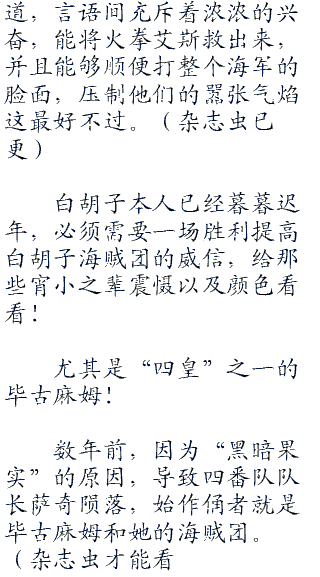 道，言语间充斥着浓浓的兴
奋，能将火拳艾斯救出来，
并且能够顺便打整个海军的
脸面，压制他们的嚣张气焰
这最好不过。（杂志虫已
更）
白胡子本人已经暮暮迟
年，必须需要一场胜利提高
白胡子海贼团的威信，给那
些宵小之辈震慑以及颜色看
看！
尤其是“四皇”之一的
毕古麻姆！
数年前，因为“黑暗果
实”的原因，导致四番队队
长萨奇陨落，始作俑者就是
毕古麻姆和她的海贼团。
（杂志虫才能看